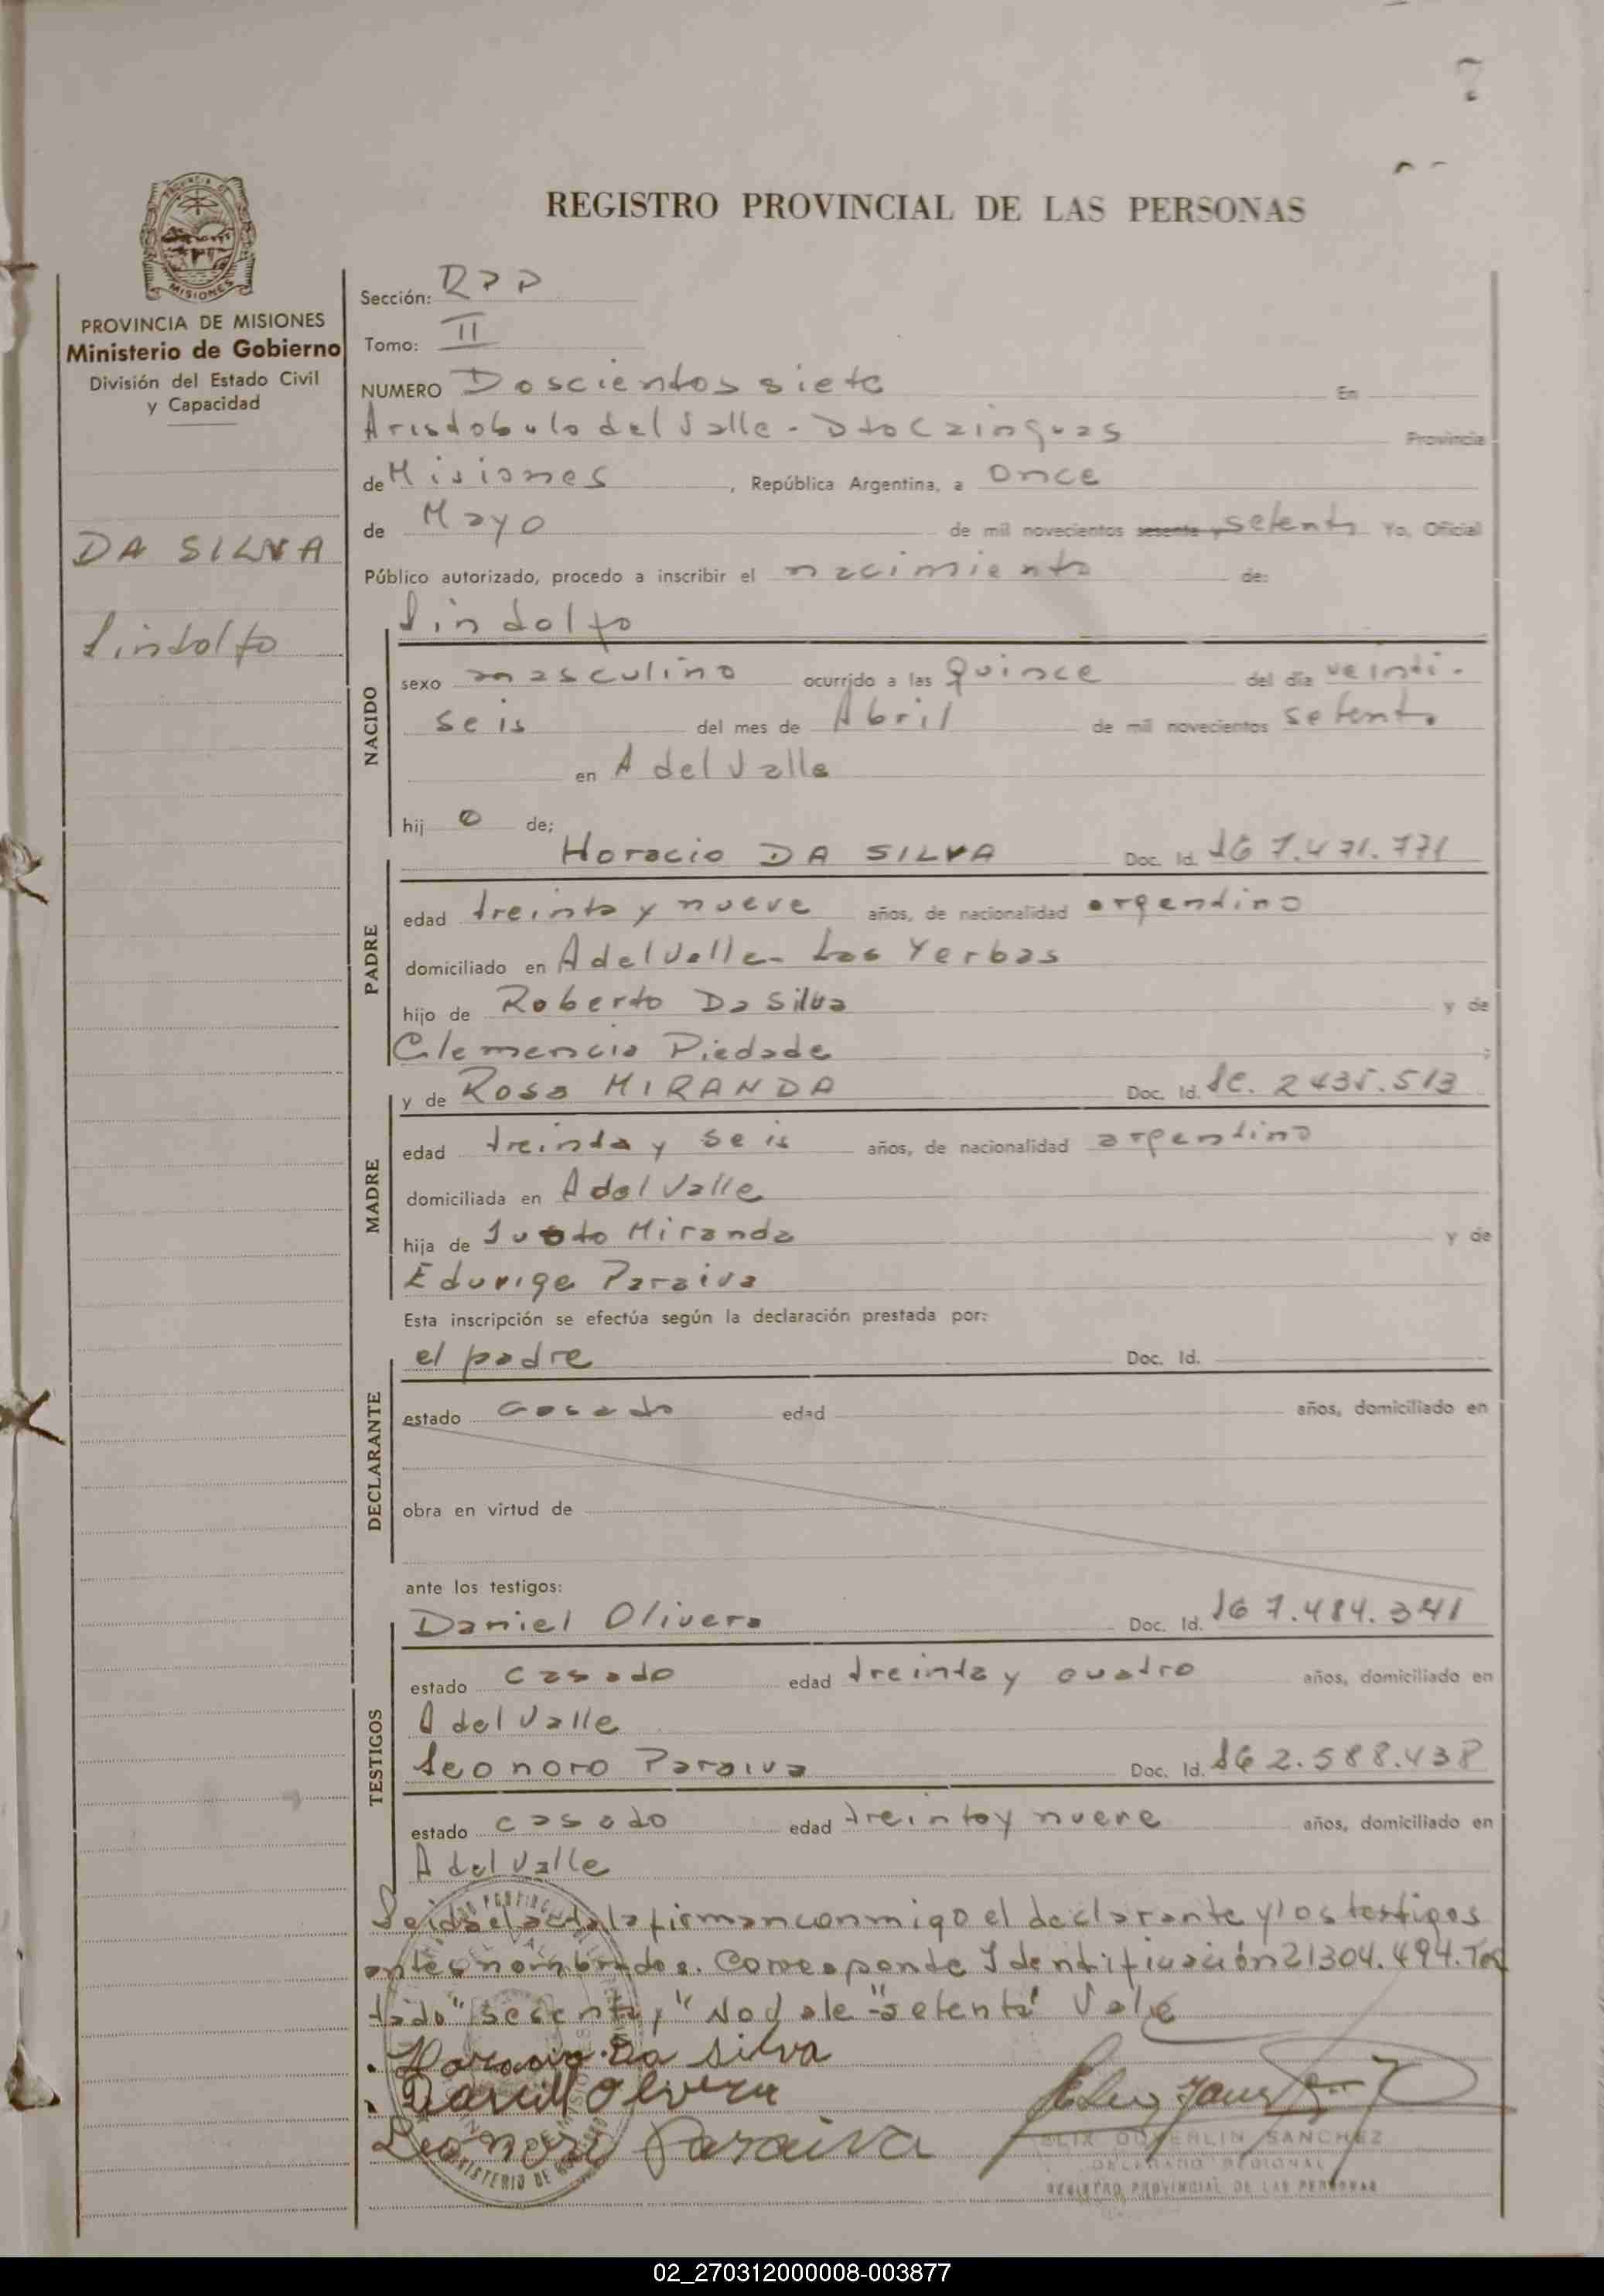 REGISTRO PROVINCIAL DE LAS PERSONAS
MISIONES
PROVINCIA DE MISIONES
Ministerio de Gobierno
División del Estado Civil
y Capacidad
DA SILVA
Lindolfo
Sección: RPP
Tomo: II
NUMERO Doscientos siete En
Aristobulo del Valle - Dto Cainguas Provincia
de Misiones, República Argentina, a Once
de Mayo de mil novecientos sesenta y setenta Yo, Oficial
Público autorizado, procedo a inscribir el nacimiento de:
Lindolfo
NACIDO
sexo masculino ocurrido a las quince del día veinti-
seis del mes de Abril de mil novecientos setenta
en A del Valle
hij o de;
Horacio DA SILVA Doc. Id. 7.471.771
PADRE
edad treinta y nueve años, de nacionalidad argentino
domiciliado en A del Valle - Las Yerbas
hijo de Roberto Da Silva y de
Clemencia Piedade ;
y de Rosa MIRANDA Doc. Id. 2435.513
MADRE
edad treinta y seis años, de nacionalidad argentino
domiciliada en A del Valle
hija de Justo Miranda y de
Eduvige Paraiva
Esta inscripción se efectúa según la declaración prestada por:
el padre Doc. Id.
DECLARANTE
estado casado edad años, domiciliado en
obra en virtud de
ante los testigos:
Daniel Olivera Doc. Id. 7.484.341
TESTIGOS
estado casado edad treinta y cuatro años, domiciliado en
A del Valle
Leonoro Paraiva Doc. Id. 2.588.438
estado casado edad treinta y nueve años, domiciliado en
A del Valle
Leida el acta la firman conmigo el declarante y los testigos
antes nombrados. Corresponde Identificación 21304.494. Tes
tado "sesenta y" No vale "setenta" Vale
Horacio Da Silva
Daniel Olivera
Leonoro Paraiva
SANCHEZ
DELEGADO REGIONAL
REGISTRO PROVINCIAL DE LAS PERSONAS
02_270312000008-003877